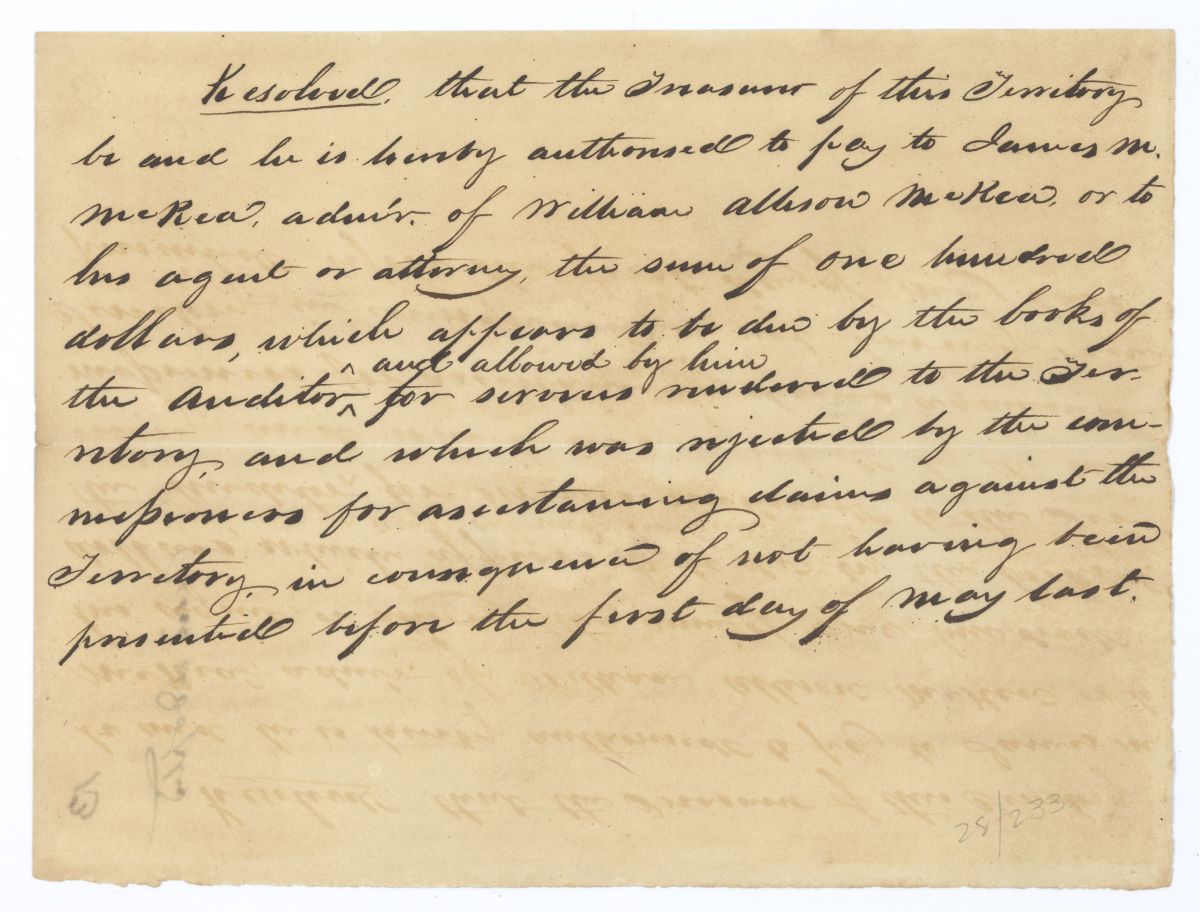 Resolved, that the Treasurer of this Territory
be and he is hereby authorised to pay to James M.
McRea, adm'r. of William Allison McRea, or to
his agent or attorney, the sum of one hundred
dollars, which appears to be due by the books of
and allowed by him
the Auditor ^ for services rendered to the Ter-
ritory, and which was rejected by the com-
missioners for ascertaining claims against the
Territory, in consequence of not having been
presented before the first day of May last.
28/233